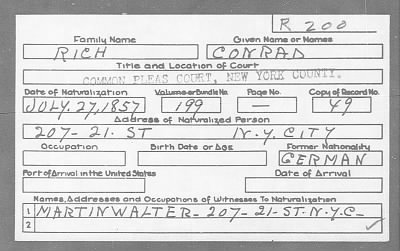 R 200
Family Name Given Name or Names
RICH CONRAD
Title and Location of Court
COMMON PLEAS COURT, NEW YORK COUNTY.
Date of Naturalization Volume or Bundle No. Page No. Copy of Record No.
JULY. 27, 1857 199 — 49
Address of Naturalized Person
207 - 21. ST N.Y. CITY
Occupation Birth Date or Age Former Nationality
GERMAN
Port of Arrival in the United States Date of Arrival
Names, Addresses and Occupations of Witnesses To Naturalization
1 MARTIN WALTER - 207 - 21 - ST - N.Y.C -
2